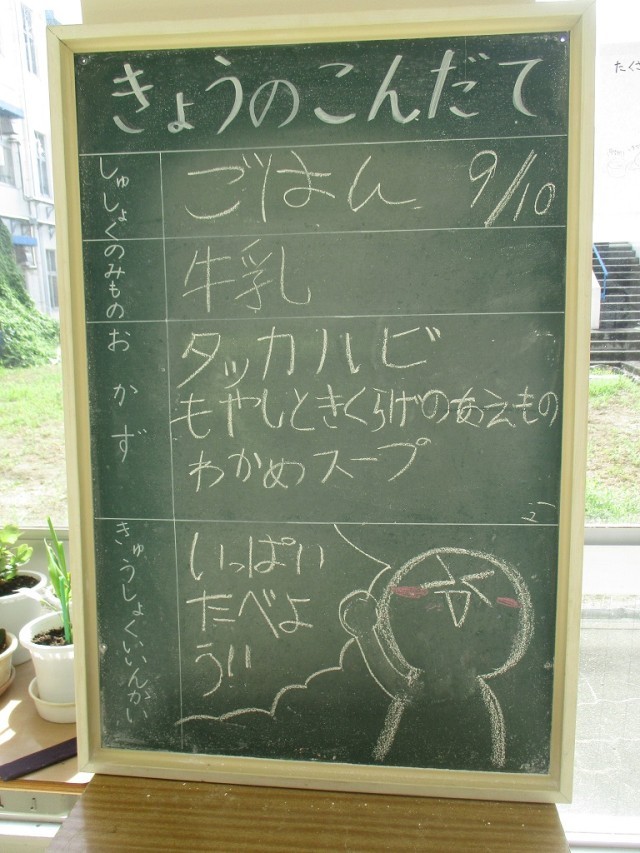 きょうのこんだて
しゅしょく
ごはん 9/10
のみもの
牛乳
おかず
タッカルビ
もやしときくらげのあえもの
わかめスープ
きゅうしょくいいんかい
いっぱい
たべよ
う!!
たくさ